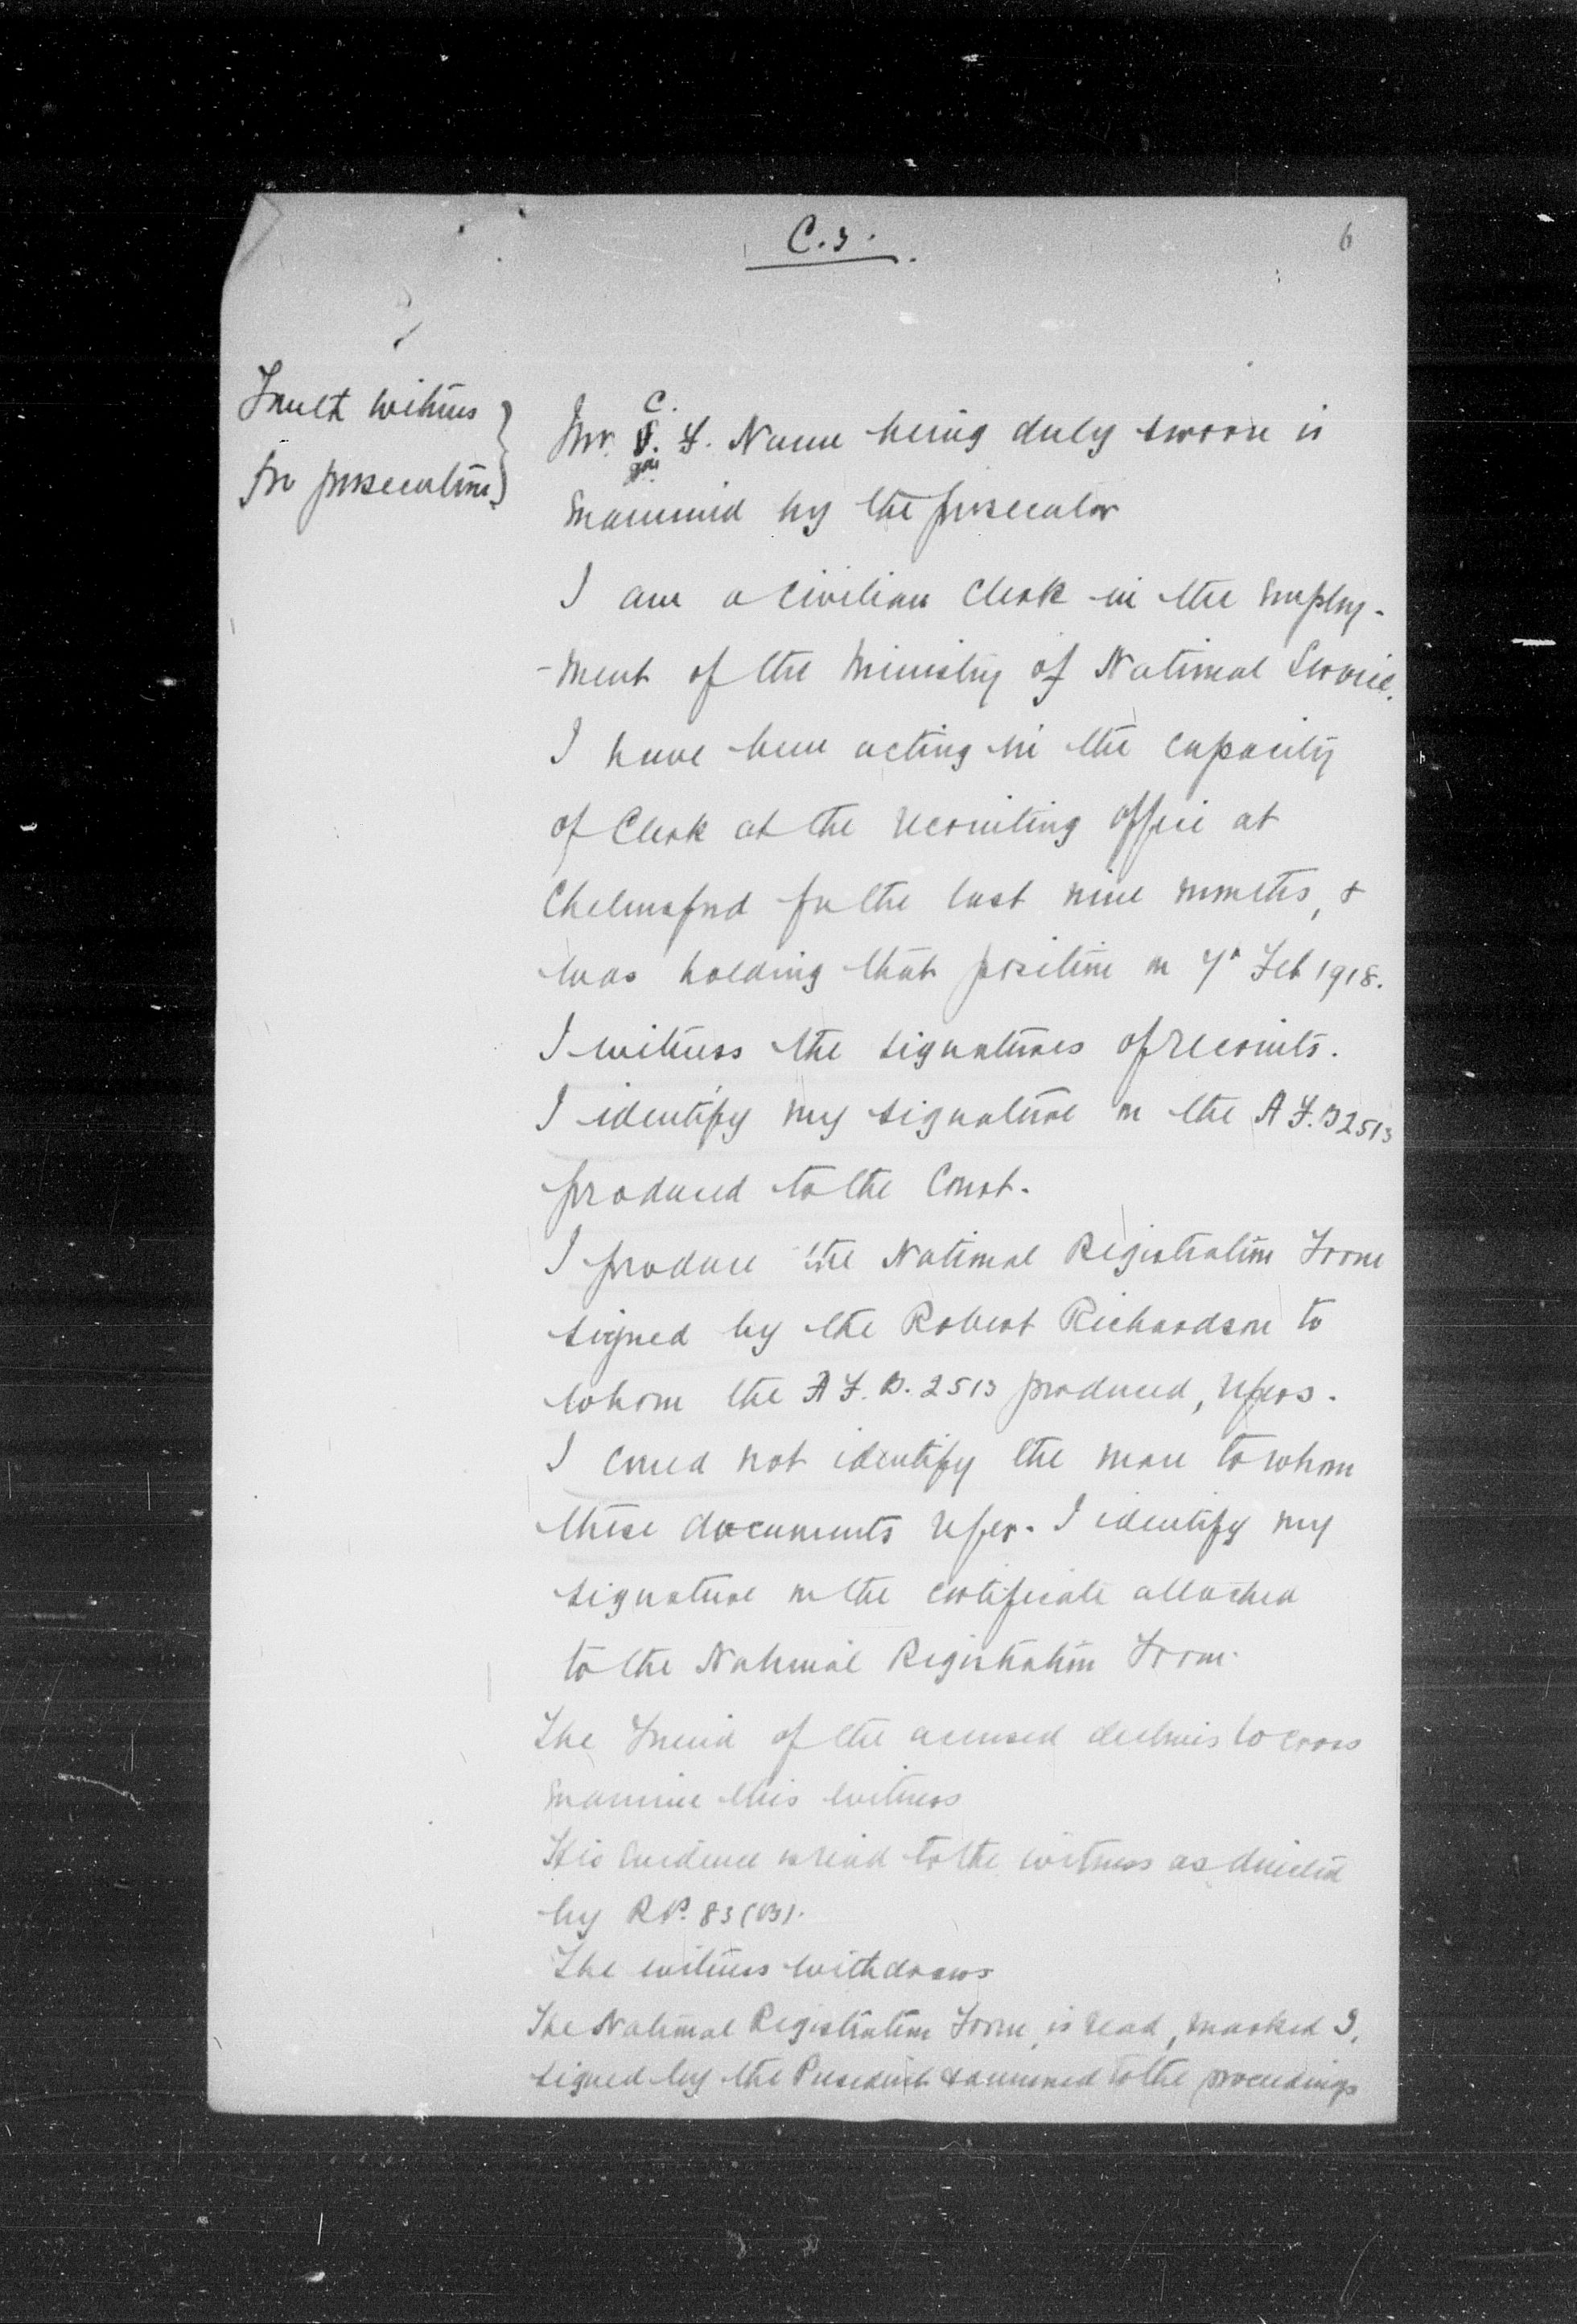 C.3.
6
Fourth witness
for prosecution
Mr. C. F. Nunn being duly sworn is
examined by the prosecutor
I am a civilian Clerk in the employ-
-ment of the Ministry of National Service.
I have been acting in the capacity
of Clerk at the recruiting office at
Chelmsford for the last nine months, &
was holding that position on 7th Feb 1918.
I witness the signatures of recruits.
I identify my signature on the A F. B 2513
produced to the Court.
I produce the National Registration Form
signed by the Robert Richardson to
whom the A F. B. 2513 produced, refers.
I could not identify the man to whom
these documents refer. I identify my
signature on the certificate attached
to the National Registration Form.
The Friend of the accused declines to cross
examine this witness
His evidence is read to the witness as directed
by RP. 83 (B).
The witness withdraws
The National Registration Form, is read, marked I,
signed by the President & annexed to the proceedings